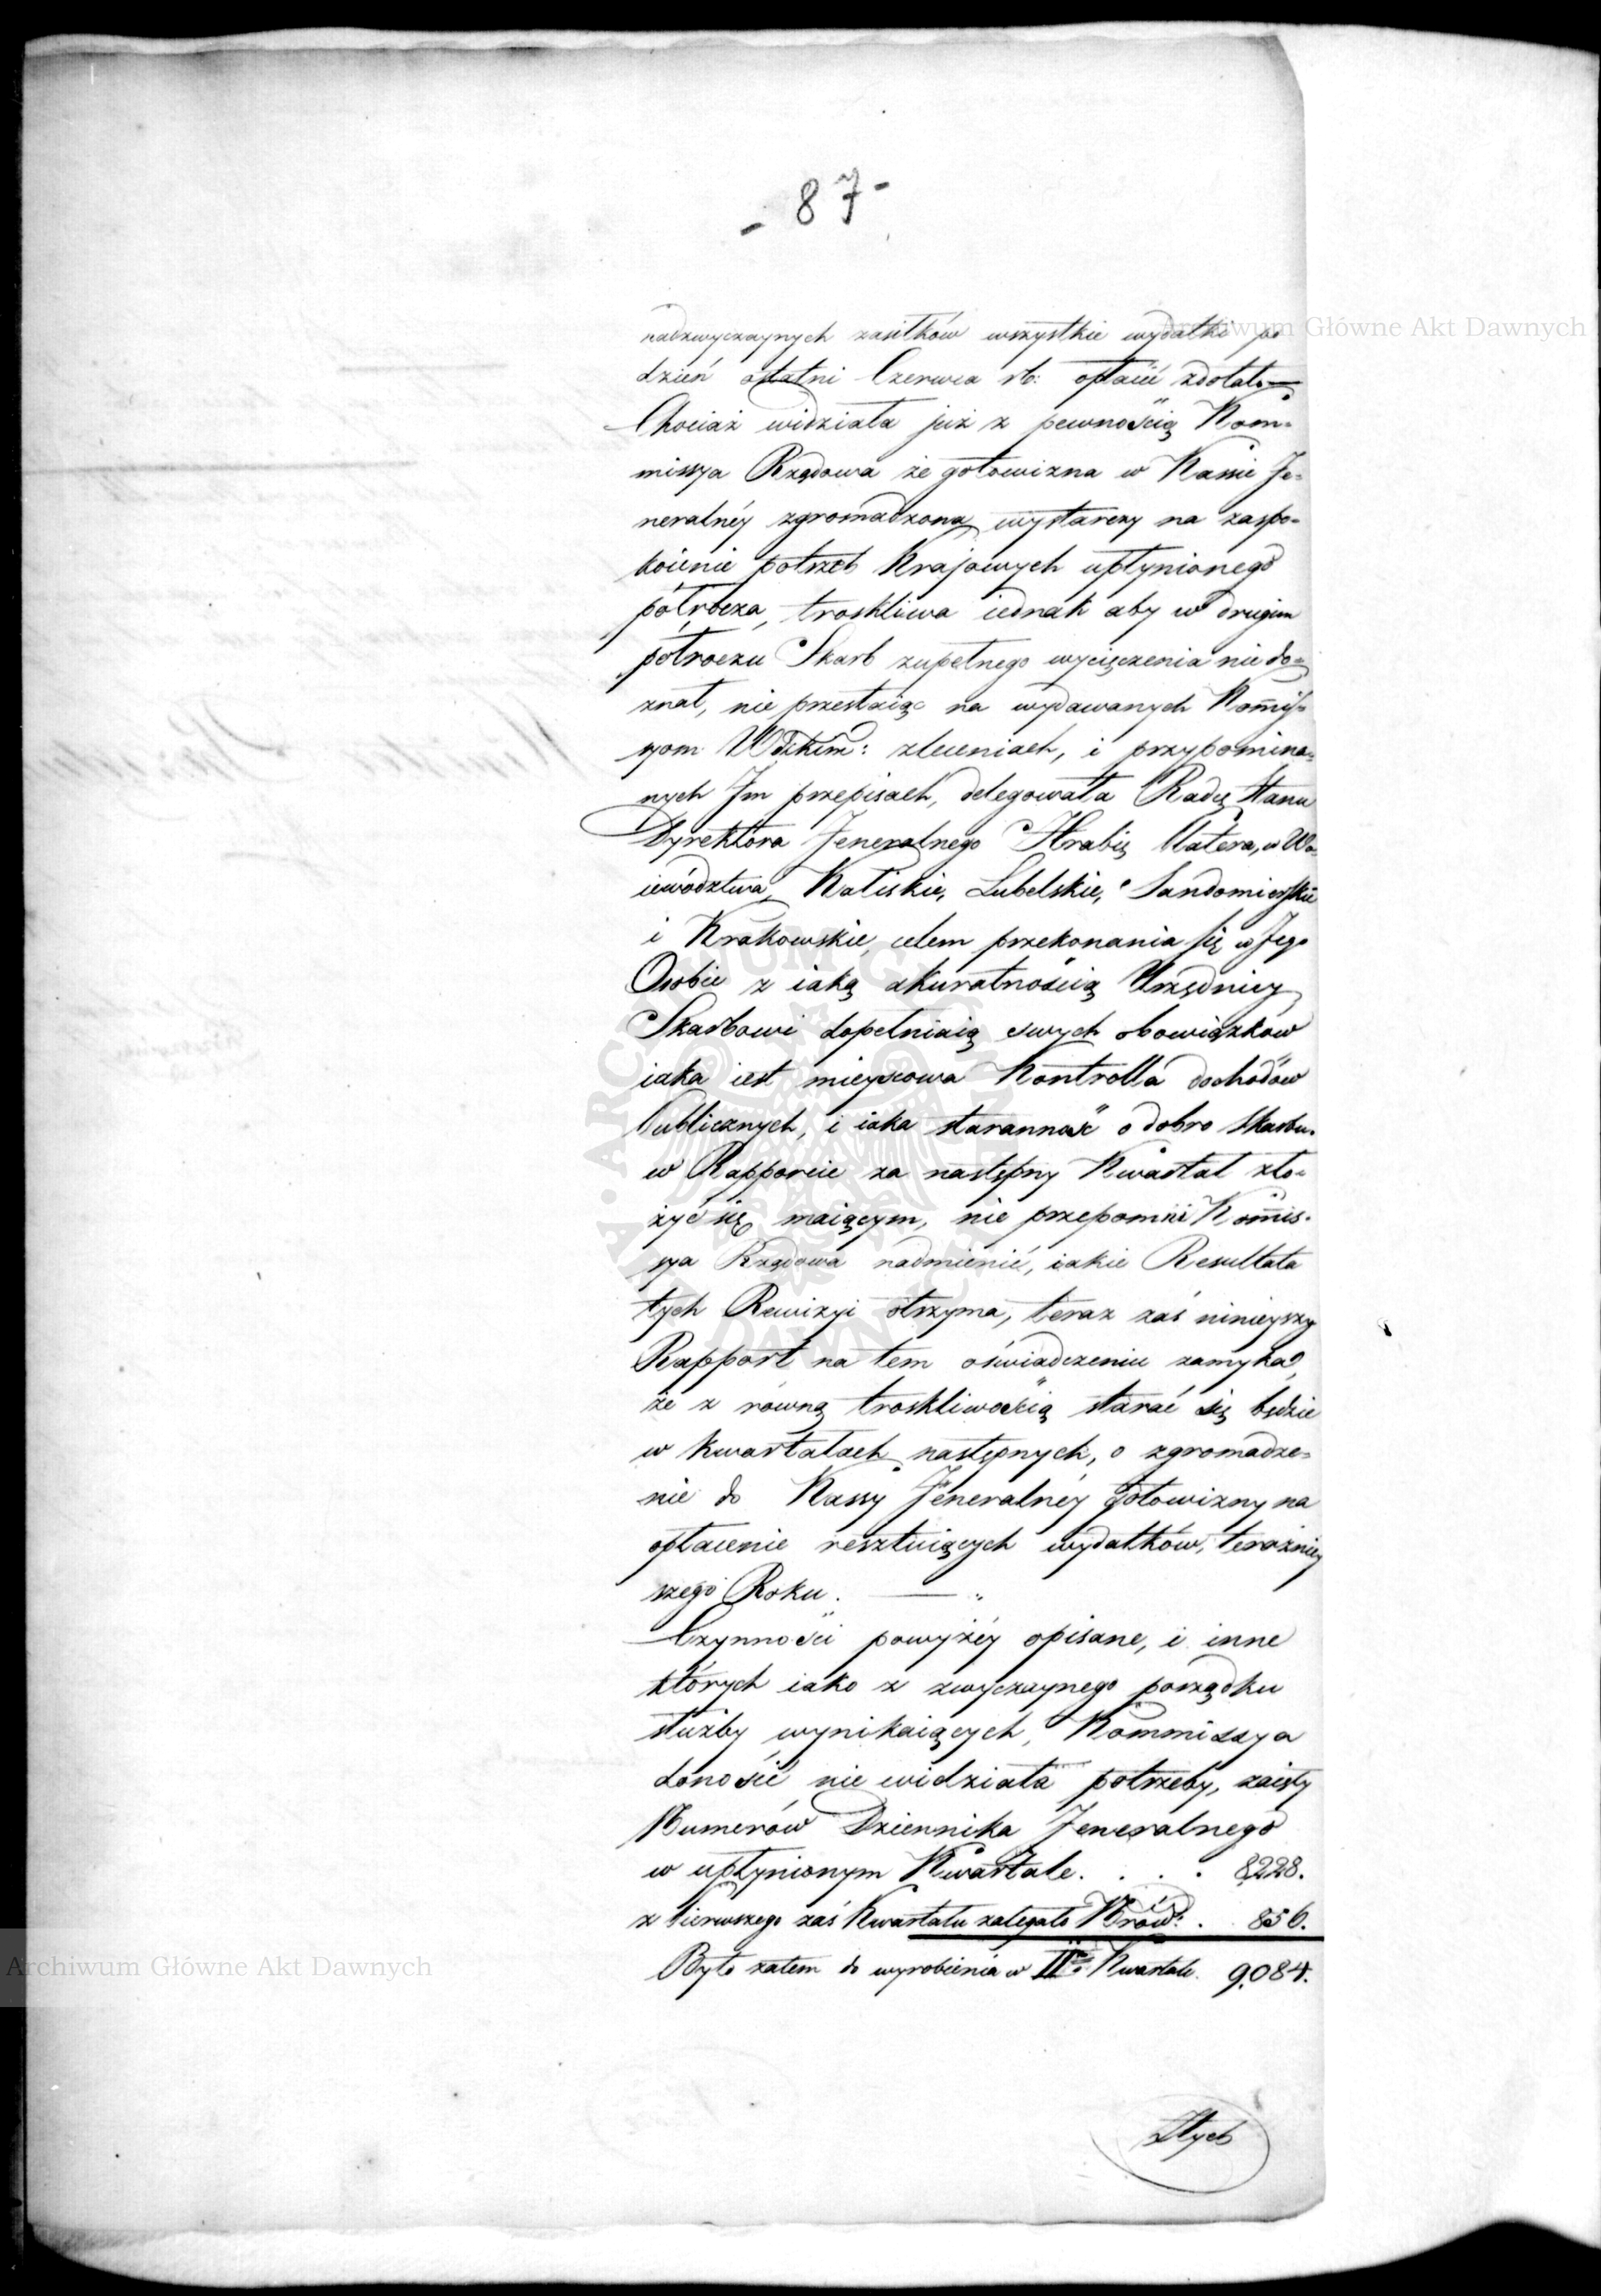 - 87 -
nadzwyczaynych zasiłków wszystkie wydatki po
dzień ostatni Czerwca rb: opłacić zdołała —
Chociaż widziała już z pewnością Kom-
missya Rządowa że gotowizna w Kassie Je-
neralnéy zgromadzona, wystarczy na zaspo-
koienie potrzeb Krajowych upłynionego
półrocza, troskliwa iednak aby w drugim
półroczu Skarb zupełnego wycięczenia nie do-
znał, nie przestaiąc na wydawanych Kom̄is-
syom Wdzkim: zleceniach, i przypomina-
nych Im przepisach, delegowała Radcę Stanu
Dyrektora Jeneralnego Hrabię Platera, w Wo-
iewództwa Kaliskie, Lubelskie, Sandomierskie
i Krakowskie, celem przekonania się w Jego
Osobie z iaką akuratnością Urzędnicy
Skarbowi dopełniaią swych obowiązków
iaka iest mieyscowa Kontrolla dochodów
Publicznych, i iaka staranność o dobro Skarbu.
w Rapporcie za następny Kwartał zło-
żyć się maiącym, nie przepomni Kom̄is-
sya Rządowa nadmienić, iakie Resultata
tych Rewizyi otrzyma, teraz zaś ninieyszy
Rapport na tem oświadczeniu zamyka,
że z równą troskliwością starać się będzie
w kwartałach następnych, o zgromadze-
nie do Kassy Jeneralnéy gotowizny na
opłacenie resztuiących wydatków, teraźniey
szego Roku. —
Czynności powyżéy opisane, i inne
których iako z zwyczaynego porządku
służby wynikaiących, Kommissya
donosić nie widziała potrzeby, zaięły
Numerów Dziennika Jeneralnego
w upłynionym Kwartale. . . . 8,228.
z Pierwszego zaś Kwartału zalegało Nrów: . 856.
Było zatem do wyrobienia w IIm Kwartale. 9,084.
Z tych
Archiwum Główne Akt Dawnych
Archiwum Główne Akt Dawnych